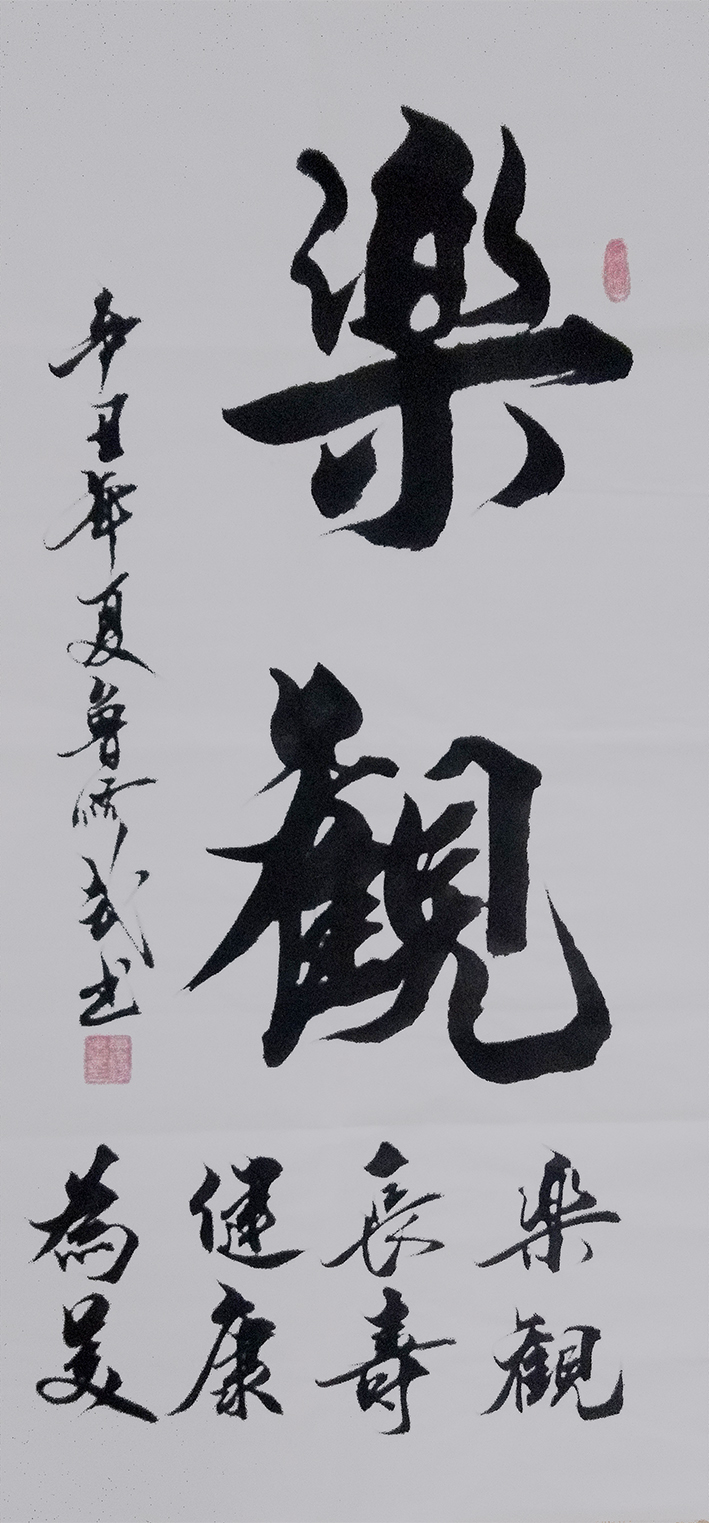 樂觀
辛丑年夏魯修武書
樂觀
長壽
健康
為美